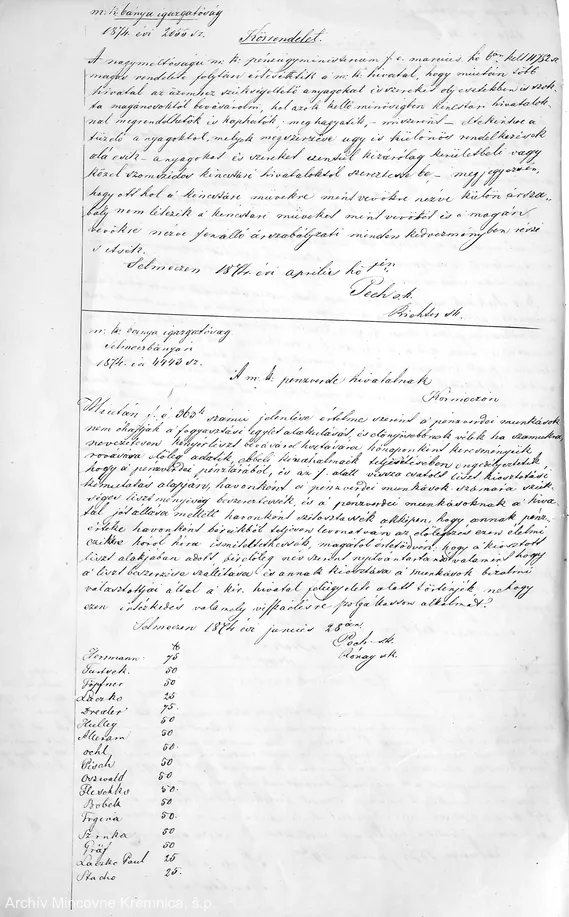 m. k. bánya igazgatóság
1874. évi 2600 sz.
Körrendelet.
A nagyméltóságu m. k. pénzügyministerium f. e. március hó kelt 11752 sz
magas rendelete folytán értesíttetik a m. k. hivatal, hogy miután több
hivatal az üzemhez szükségeltető anyagokat és szereket oly esetekben is szok-
ta magánosoktól bevásárolni, hol azok kellő minőségben kincstári hivatalok-
nál megrendelhetők és kaphatók, meghagyatik, — miszerint — eltekintve a
tüzelő anyagoktól, melyek megszerzése ugy is különös rendelkezések
alá esik — anyagokat és szereket ezentúl kizárólag kerületbeli vagy
közel szomszédos kincstári hivataloktól szereztesse be — megjegyezvén,
hogy ott hol a kincstári művekre mint vevőkre nézve külön árszab-
ály nem létezik a kincstári művekre mint vevőkre is a magán
vevőkre nézve fenálló árszabályzati minden kedvezményben részé
sittetik.
Selmeczen 1874 évi április hó
Péch sk.
Richter sk.
m. k. bánya igazgatóság
Selmeczbányán
1874. év 4443 sz.
A m. k. pénzverde hivatalnak
Körmöczön
Miután f. é. 363 számu jelentése értelme szerint a pénzverdei munkások
nem óhajtják a fogyasztási egylet alakulását, és előnyösebbnek vélik ha számukra
nevezetesen kenyérliszt bevásárolhatására hónaponként keresményeik
rovására előleg adatik, ebbeli kivánalmaik teljesítésében engedélyeztetik,
hogy a pénzverdei pénztárból, és az /. alatt vissza csatolt liszt kiosztási
kimutatás alapján, havonként a pénzverdei munkások számára szük-
séges liszt mennyiség beszereztessék, és a pénzverdei munkásoknak a hiva-
tal jótállása mellett havonként szétosztassék akképen, hogy annak pénz-
értéke havonként béreikből teljesen levonatván az előlegezés ezen élelmi
czikkre hóról hóra ismételtethessék, magától értetődvén, hogy a kiosztott
liszt alakjában adott bérelőleg név szerint nyilvántartandó valamint hogy
a liszt beszerzése szállítása és annak kiosztása a munkások bizalmi
választottjai által a kir. hivatal felügyelete alatt történjék nehogy
ezen intézkedés valamely visszaélésre szolgáltasson alkalmat.
Selmeczen 1874 évi junius 28án
Péch sk.
Rónay sk.
Herrmann 75
50
Töpfner 50
Laczko 25
Drexler 75.
Hulley 50
Alleram 50
ochl 50.
Pisch 50
Oszwald 50
Fleschko 50.
Bobek 50
Frgena 50.
Szrnka 50
Gráf 50
Laczko Paul 25
Stacho 25.
Archív Mincovne Kremnica, š.p.